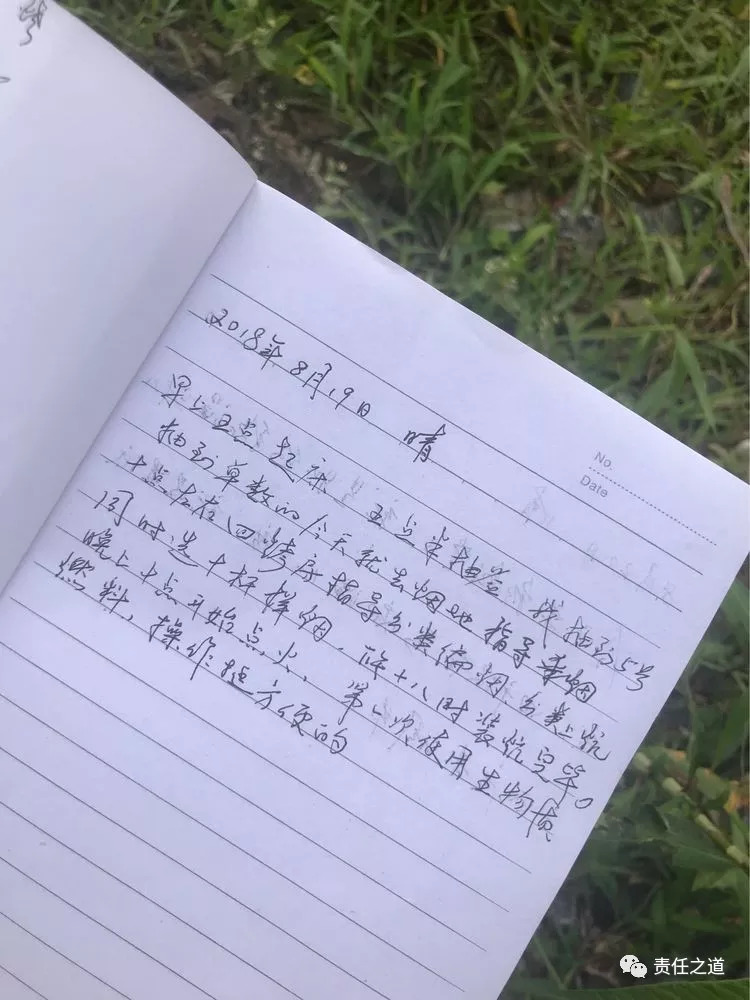 2018年8月19日 晴
No.
Date
早上五点起床 五点半抽签 我抽到5号
抽到单数的今天就去烟地指导采烟
十点左右回烤房指导分类编烟、分类上炕
同时选十杆样烟,
十八时装炕完毕。
晚上十点开始点火、第一次使用生物质
燃料,操作挺方便的
责任之道